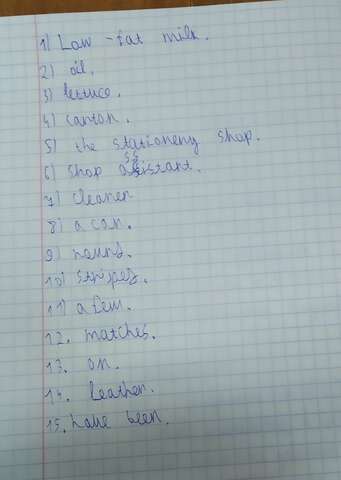 1) Low-fat milk.
2) oil.
3) lettuce.
4) carton.
5) the stationery shop.
6) shop assistant.
7) cleaner
8) a can.
9) round.
10) stripes.
11) a few.
12. matches.
13. on.
14. leather.
15. have been.